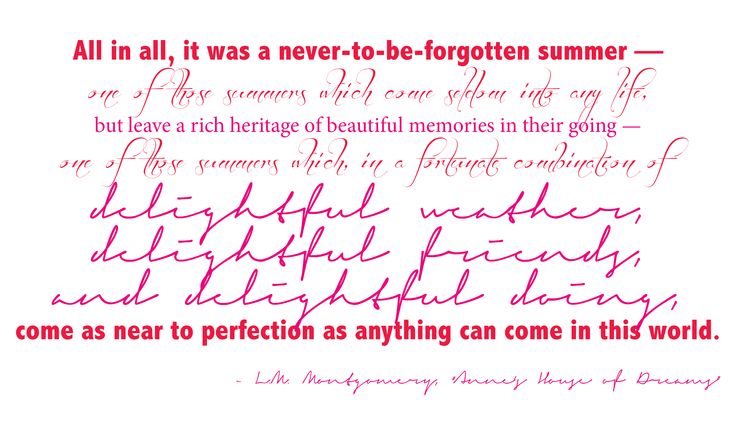 All in all, it was a never-to-be-forgotten summer —
one of those summers which come seldom into any life,
but leave a rich heritage of beautiful memories in their going —
one of those summers which, in a fortunate combination of
delightful weather,
delightful friends,
and delightful doing,
come as near to perfection as anything can come in this world.
- L.M. Montgomery, "Anne's House of Dreams"